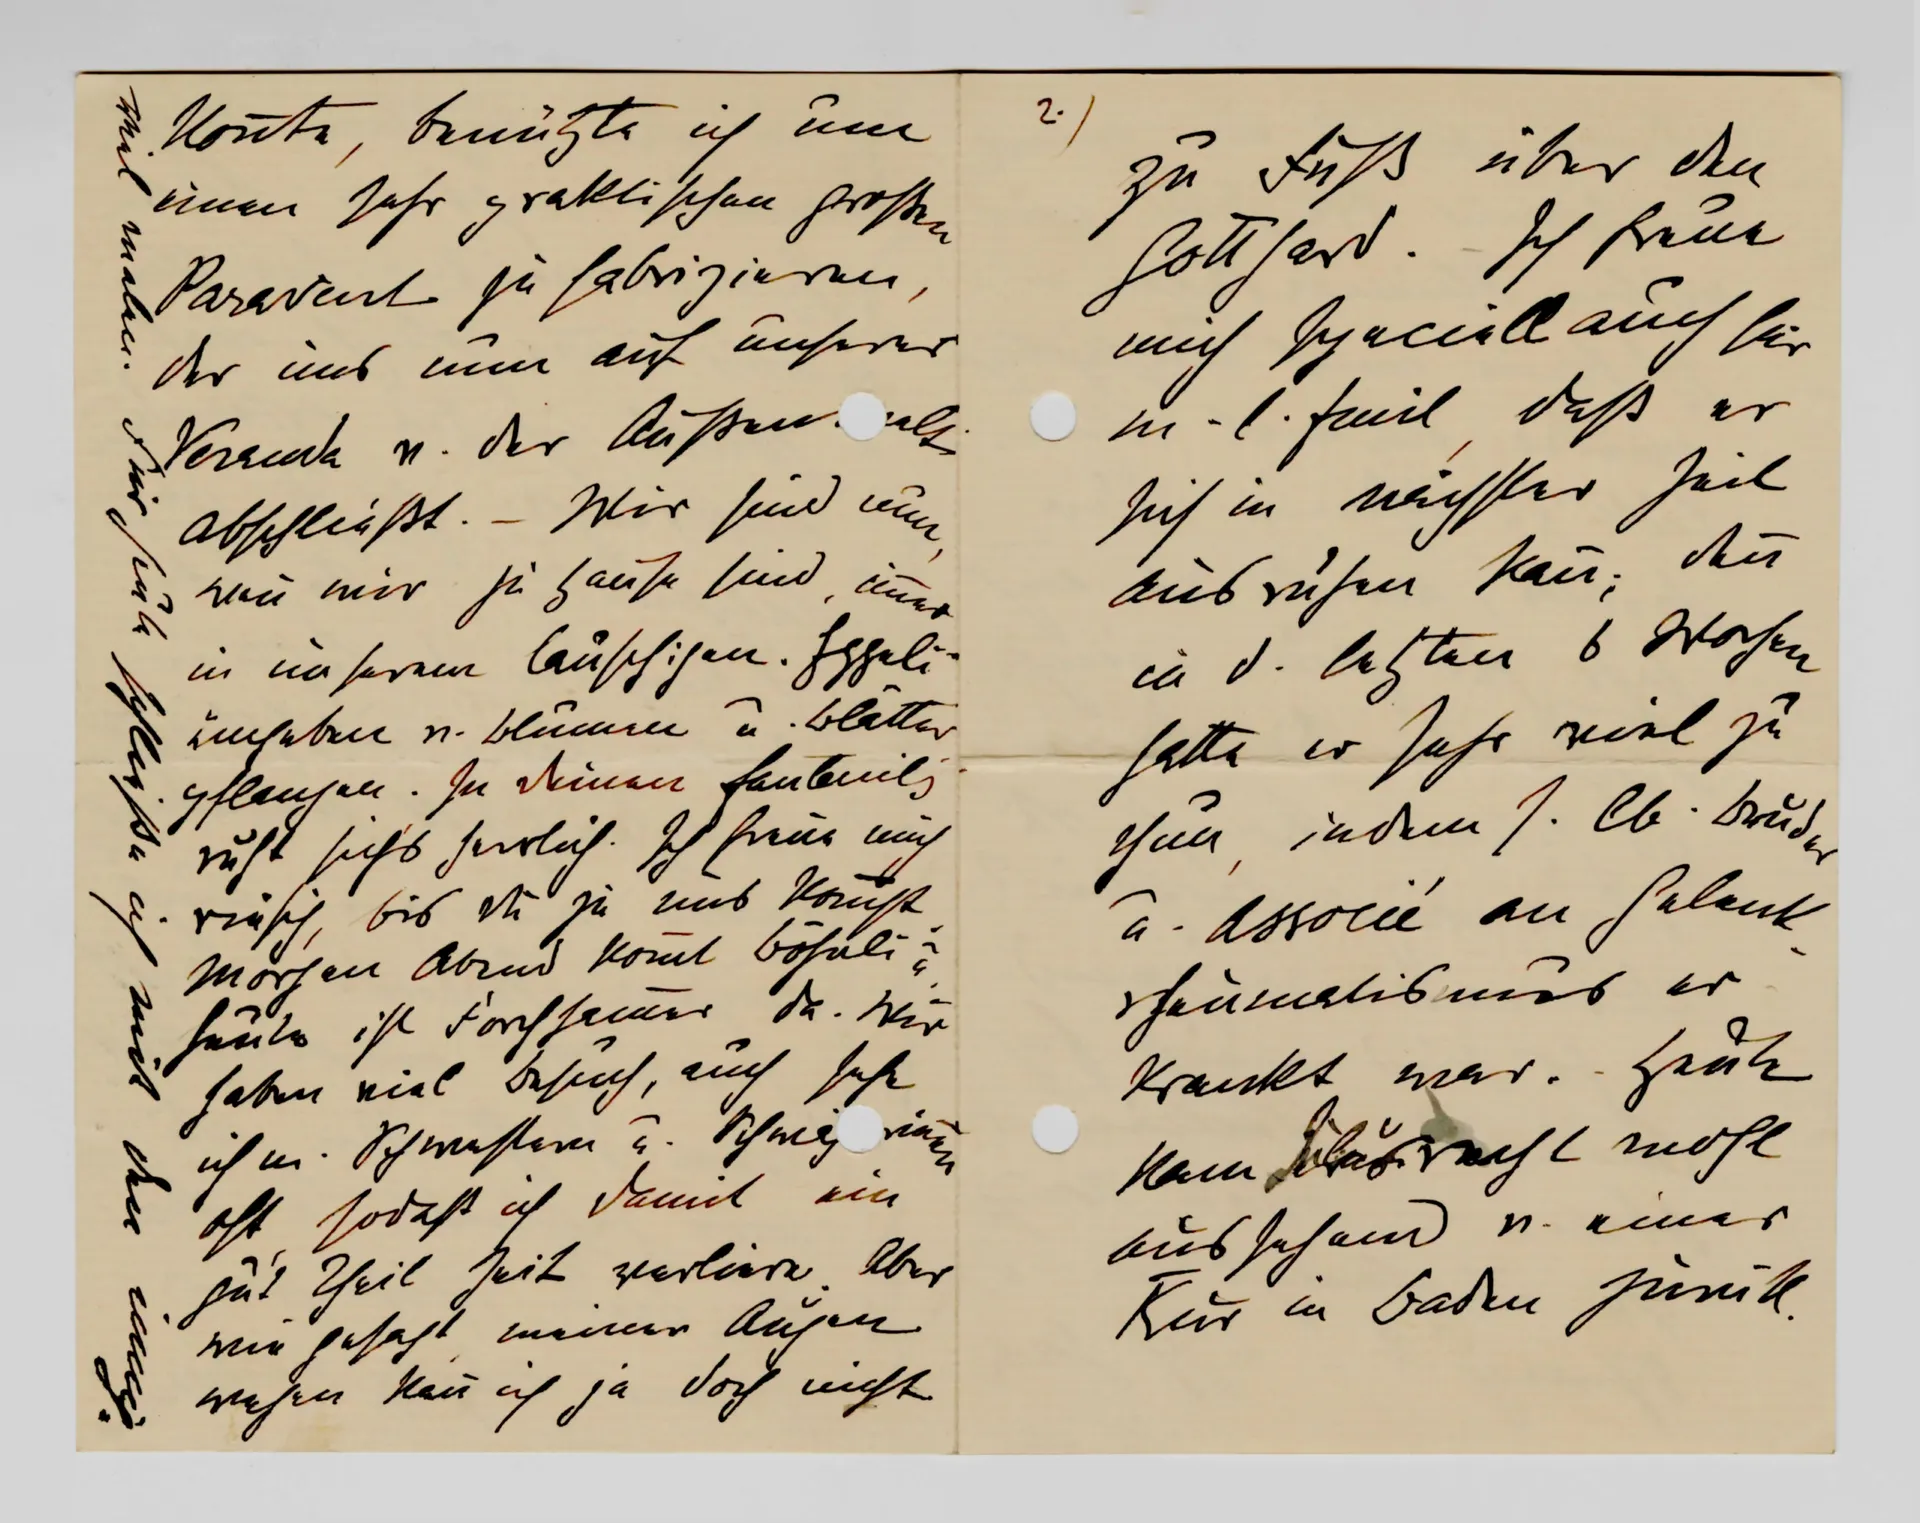 konnte, benützte ich um
einen sehr praktischen großen
Paravent zu fabrizieren,
der uns nun auf unserer
Veranda v. der Außenwelt
abschließt. – Wir sind nun,
wen̄ wir zu Hause sind, im̄er
in unserem lauschigen
umgeben v. Blumen u. Blätter
pflanzen. In deinen Fauteuils
ruht sich's herrlich. Ich freue mich
riesig, bis du zu uns kom̄st.
Morgen Abend kom̄t Böhnli u.
heute ist Forchham̄er da. Wir
haben viel Besuch, auch sehe
ich m. Schwestern u. Schwägerinnen
oft, sodaß ich damit ein
gut Theil Zeit verliere. Aber
wie gesagt, meiner Augen
wegen kan̄ ich ja doch nicht
viel malen. Für heute schließe ich mit den innigs
2.)
zu Fuß über den
Gotthard. – Ich freue
mich speciell auch für
m. l. Emil, daß er
sich in nächster Zeit
ausruhen kan̄; den̄
in d. letzten 6 Wochen
hatte er sehr viel zu
thun, indem s. lb. Bruder
u. Associé an Gelenk-
rheumatismus er
krankt war. – Heute
kam recht wohl
aussehend v. einer
Kur in Baden zurück.